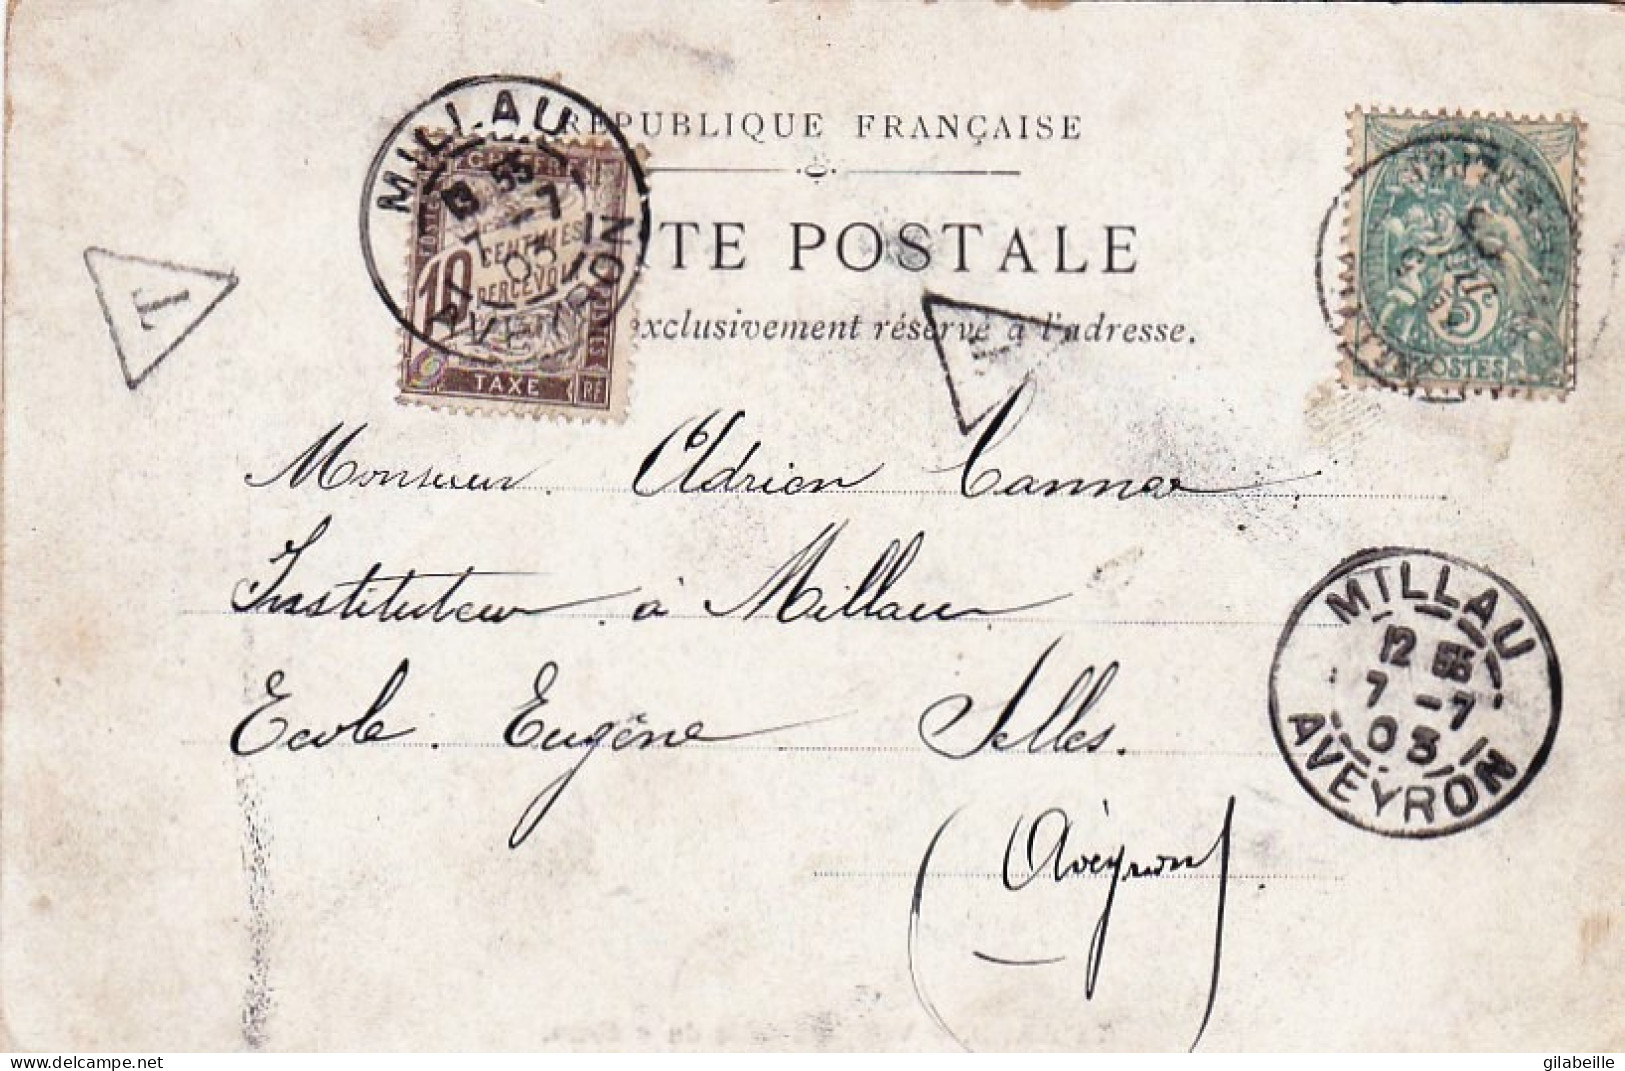 RÉPUBLIQUE FRANÇAISE
TE POSTALE
exclusivement réservé à l'adresse.
MILLAU
13 55
7 -7
03
AVEYRON
CHIFFRE
10
CENTIMES
À PERCEVOIR
TAXE
RF
T
T
5
POSTES
Monsieur Adrien
Instituteur à Millau
Ecole Eugène Selles.
(Aveyron)
MILLAU
12 55
7 -7
03
AVEYRON
delcampe.net
gilabeille